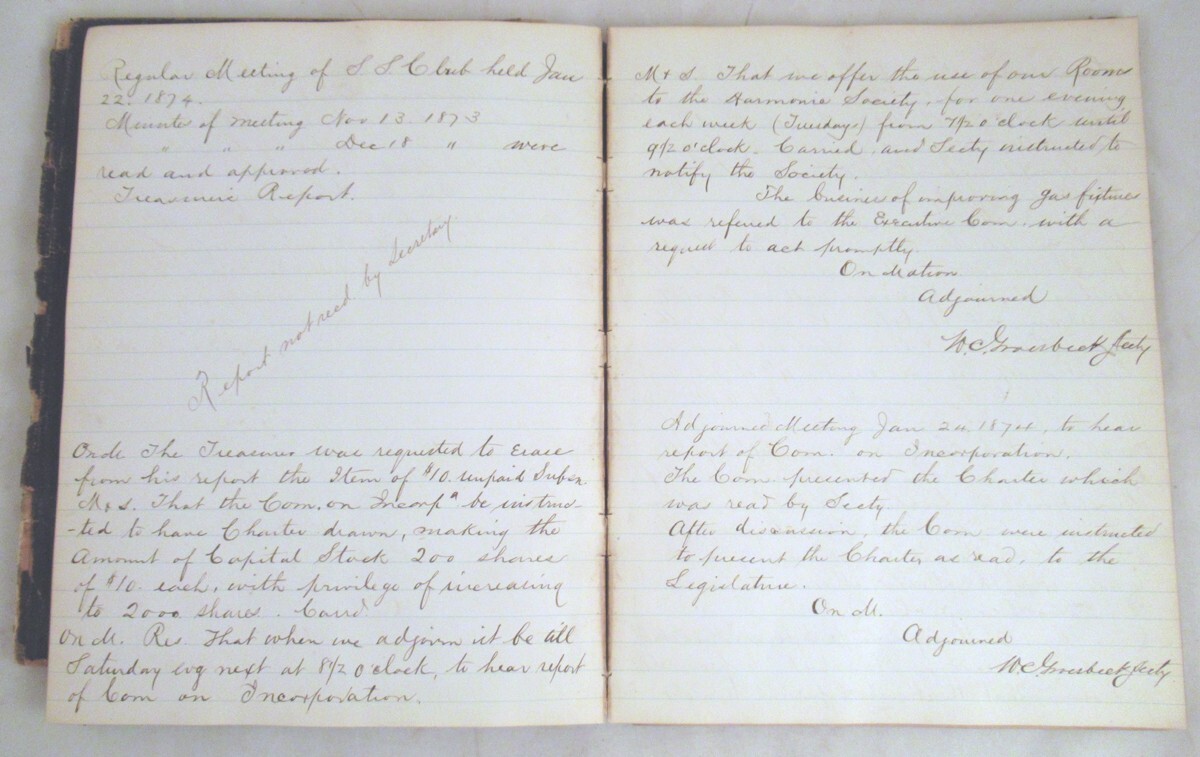 Regular Meeting of S S Club held Jan
22. 1874.
Minutes of meeting Nov 13. 1873
" " " Dec 18 " were
read and approved.
Treasurers Report.
Report not recd by Secretary
On M. The Treasurer was requested to Erase
from his report the Item of $10. unpaid Subsn.
M & S. That the Com. on Incorpn be instruc-
-ted to have Charter drawn, making the
Amount of Capital Stock 200 shares
of $10. each, with privilege of increasing
to 2000 shares. Carrd
On M. Res That when we adjourn it be till
Saturday evg next at 8 1/2 O'clock, to hear report
of Com on Incorporation.
M & S. That we offer the use of our Rooms
to the Harmonie Society, for one evening
each week (Tuesdays) from 7 1/2 o'clock until
9 1/2 o'clock. Carried and Secty instructed to
notify the Society.
The business of improving gas fixtures
was referred to the Executive Com. with a
request to act promptly.
On Motion
Adjourned
W. C. Groesbeck Secty
Adjourned Meeting Jan 24. 1874, to hear
report of Com. on Incorporation.
The Com presented the Charter which
was read by Secty
After discussion, the Com were instructed
to present the Charter as read, to the
Legislature.
On M.
Adjourned
W. C. Groesbeck Secty